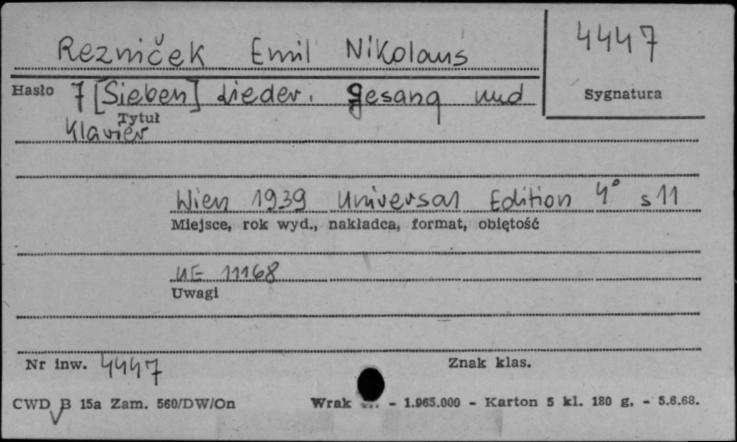 Rezniček Emil Nikolaus
4447
Hasło 7 [Sieben] Lieder. Gesang und
Sygnatura
Tytuł
Klavier
Wien 1939 Universal Edition 4° s 11
Miejsce, rok wyd., nakładca, format, objętość
UE 11168
Uwagi
Nr inw. 4447
Znak klas.
CWD B 15a Zam. 560/DW/On Wrak - 1.965.000 - Karton 5 kl. 180 g. - 5.6.68.